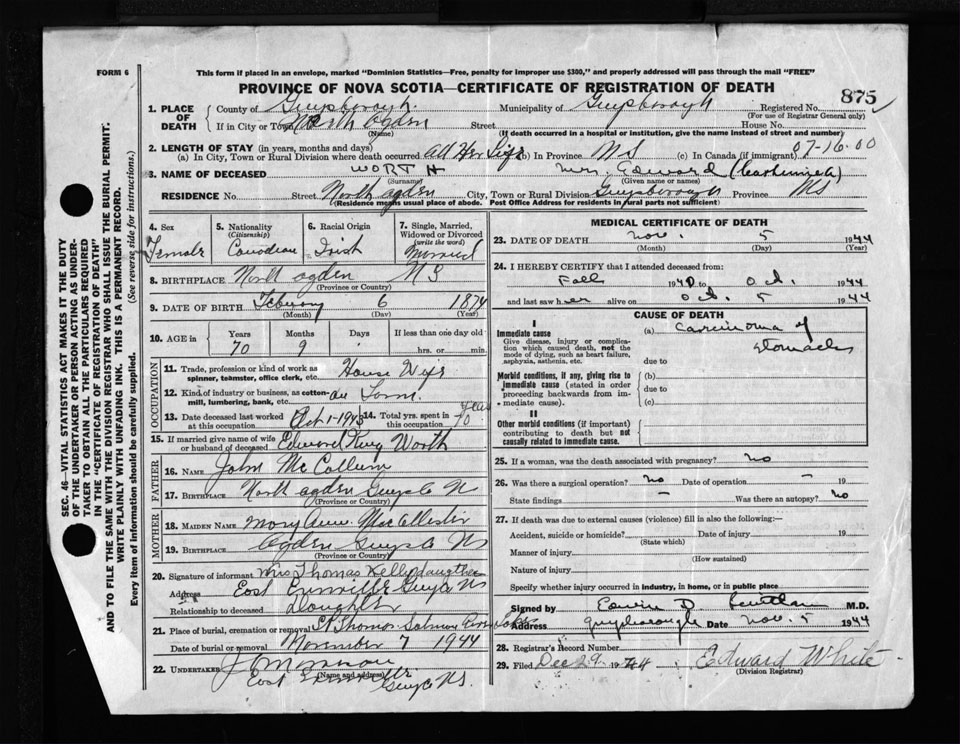 FORM 6
This form if placed in an envelope, marked "Dominion Statistics—Free, penalty for improper use $300," and properly addressed will pass through the mail "FREE"
PROVINCE OF NOVA SCOTIA—CERTIFICATE OF REGISTRATION OF DEATH
875
1. PLACE OF DEATH
County of Guysborough Municipality of Guysborough Registered No.
(For use of Registrar General only)
If in City or Town North Ogden Street House No.
(Name) (If death occurred in a hospital or institution, give the name instead of street and number)
2. LENGTH OF STAY (in years, months and days)
(a) In City, Town or Rural Division where death occurred All Her Life (b) In Province NS (c) In Canada (if immigrant) 07-16.00
3. NAME OF DECEASED WORTH Mrs. Edward
(Surname) (Given name or names)
RESIDENCE No. Street North Ogden City, Town or Rural Division Guysborough Province NS
(Residence means usual place of abode. Post Office Address for Residents in rural parts not sufficient)
4. Sex
Female
5. Nationality
(Citizenship)
Canadian
6. Racial Origin
Irish
7. Single, Married, Widowed or Divorced
(write the word)
Married
8. BIRTHPLACE North Ogden NS
(Province or Country)
9. DATE OF BIRTH February 6 1874
(Month) (Day)
10. AGE in
Years Months Days If less than one day old
70 9 hrs. or min.
OCCUPATION
11. Trade, profession or kind of work as spinner, teamster, office clerk, etc. House Wife
12. Kind of industry or business, as cotton-mill, lumbering, bank, etc. Farm
13. Date deceased last worked at this occupation Oct 1-1943 14. Total yrs. spent in this occupation years
15. If married give name of wife or husband of deceased Edward Worth
FATHER
16. NAME John McCallum
17. BIRTHPLACE North Ogden Guys Co N
(Province or Country)
MOTHER
18. MAIDEN NAME Mary Ann MacAllister
19. BIRTHPLACE Ogden Guys Co NS
(Province or Country)
20. Signature of informant Mrs Thomas Kelly daughter
Address East Erinville Guys NS
Relationship to deceased Daughter
21. Place of burial, cremation or removal St Thomas Salmon River Lake
Date of burial or removal November 7 1944
22. UNDERTAKER
(Name and address)
East Erinville
Guys Co NS.
MEDICAL CERTIFICATE OF DEATH
23. DATE OF DEATH Nov. 5 1944
(Month) (Day)
24. I HEREBY CERTIFY that I attended deceased from:
Fall 1940 to Oct. 1944
and last saw her alive on Oct. 5 1944
CAUSE OF DEATH
I
Immediate cause
Give disease, injury or complication which caused death, not the mode of dying, such as heart failure, asphyxia, asthenia, etc.
(a) Carcinoma of
stomach
due to
Morbid conditions, if any, giving rise to immediate cause (stated in order proceeding backwards from immediate cause).
(b)
due to
(c)
II
Other morbid conditions (if important) contributing to death but not causally related to immediate cause.
25. If a woman, was the death associated with pregnancy? no
26. Was there a surgical operation? no Date of operation – 19
State findings – Was there an autopsy? no
27. If death was due to external causes (violence) fill in also the following:—
Accident, suicide or homicide? Date of injury 19
(State which)
Manner of injury
(How sustained)
Nature of injury
Specify whether injury occurred in industry, in home, or in public place
Signed by Edwin D. M.D.
Address Guysborough Date Nov. 5 1944
28. Registrar's Record Number
29. Filed Dec 29 1944 Edward White
(Division Registrar)
SEC. 46—VITAL STATISTICS ACT MAKES IT THE DUTY
OF THE UNDERTAKER OR PERSON ACTING AS UNDERTAKER TO OBTAIN ALL THE PARTICULARS REQUIRED
IN THE "CERTIFICATE OF REGISTRATION OF DEATH"
AND TO FILE THE SAME WITH THE DIVISION REGISTRAR WHO SHALL ISSUE THE BURIAL PERMIT.
WRITE PLAINLY WITH UNFADING INK. THIS IS A PERMANENT RECORD.
Every item of Information should be carefully supplied. (See reverse side for instructions.)